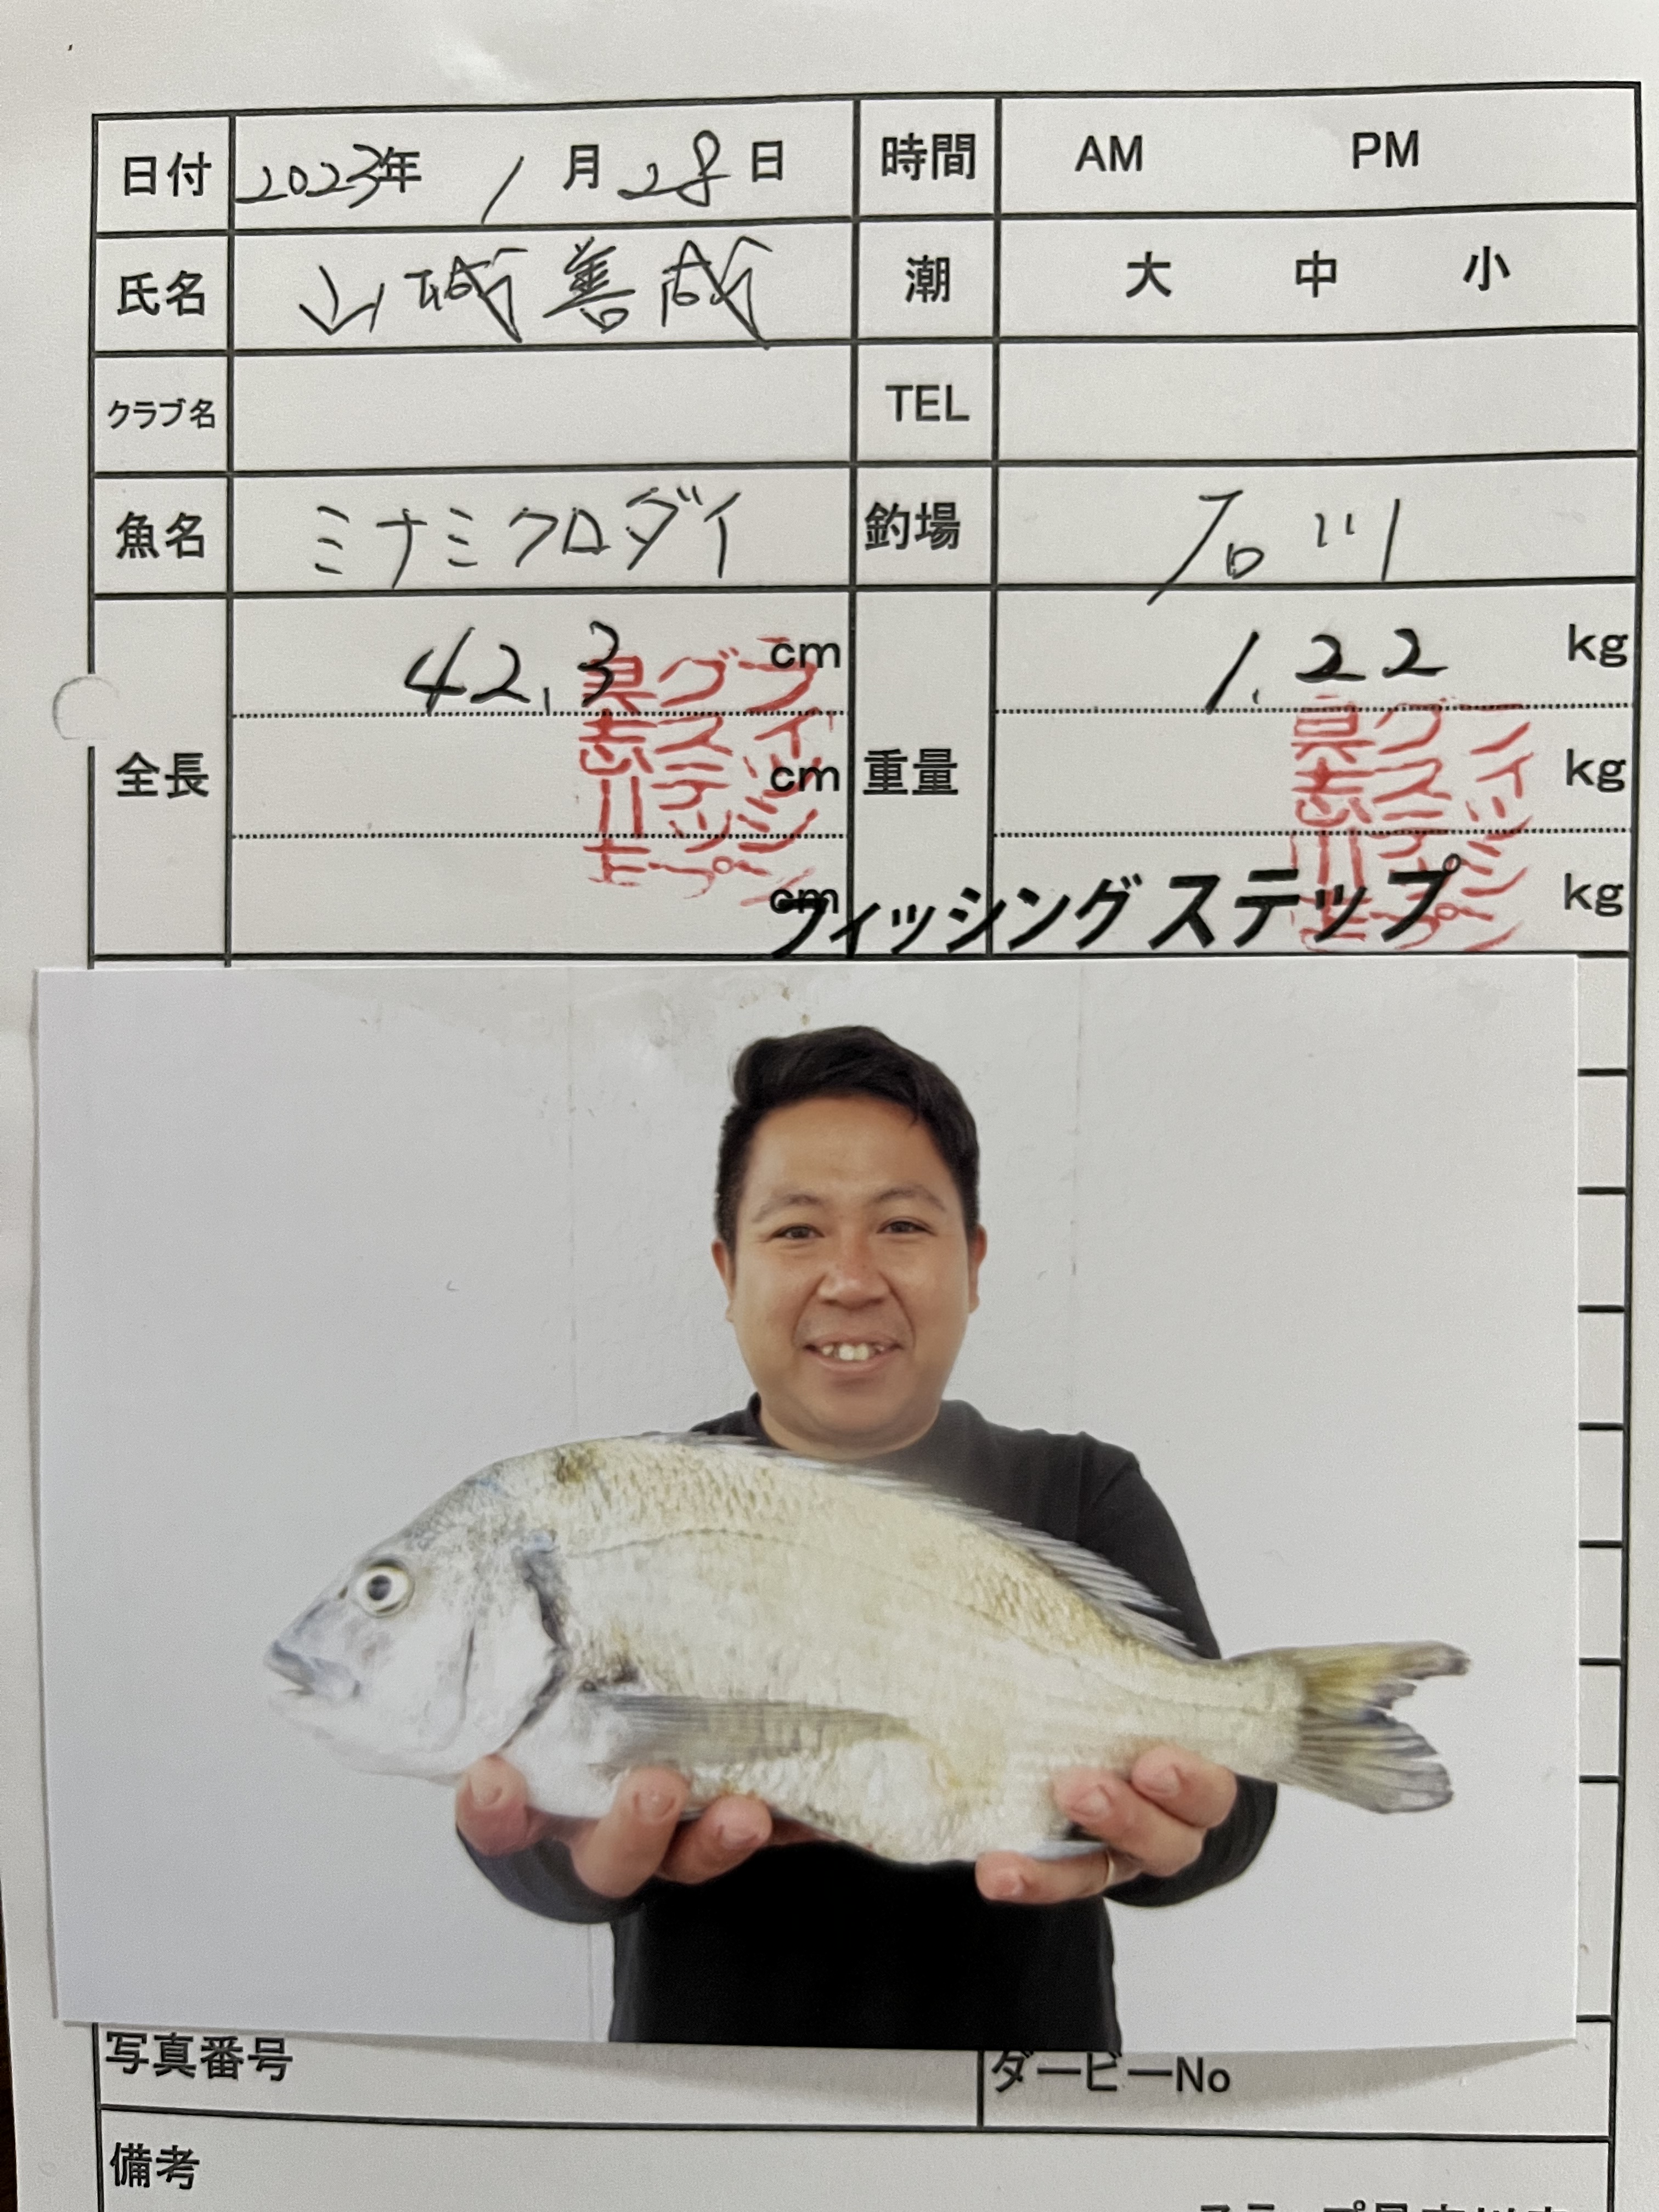 日付 2023年 1月 28日 時間 AM PM
氏名 山城善成 潮 大 中 小
クラブ名 TEL
魚名 ミナミクロダイ 釣場 石川
全長 42.3 cm 重量 1.22 kg
cm kg
cm kg
フィッシング
グステップ
具志川店
フィッシング
グステップ
具志川店
フィッシングステップ
写真番号 ダービーNo
備考